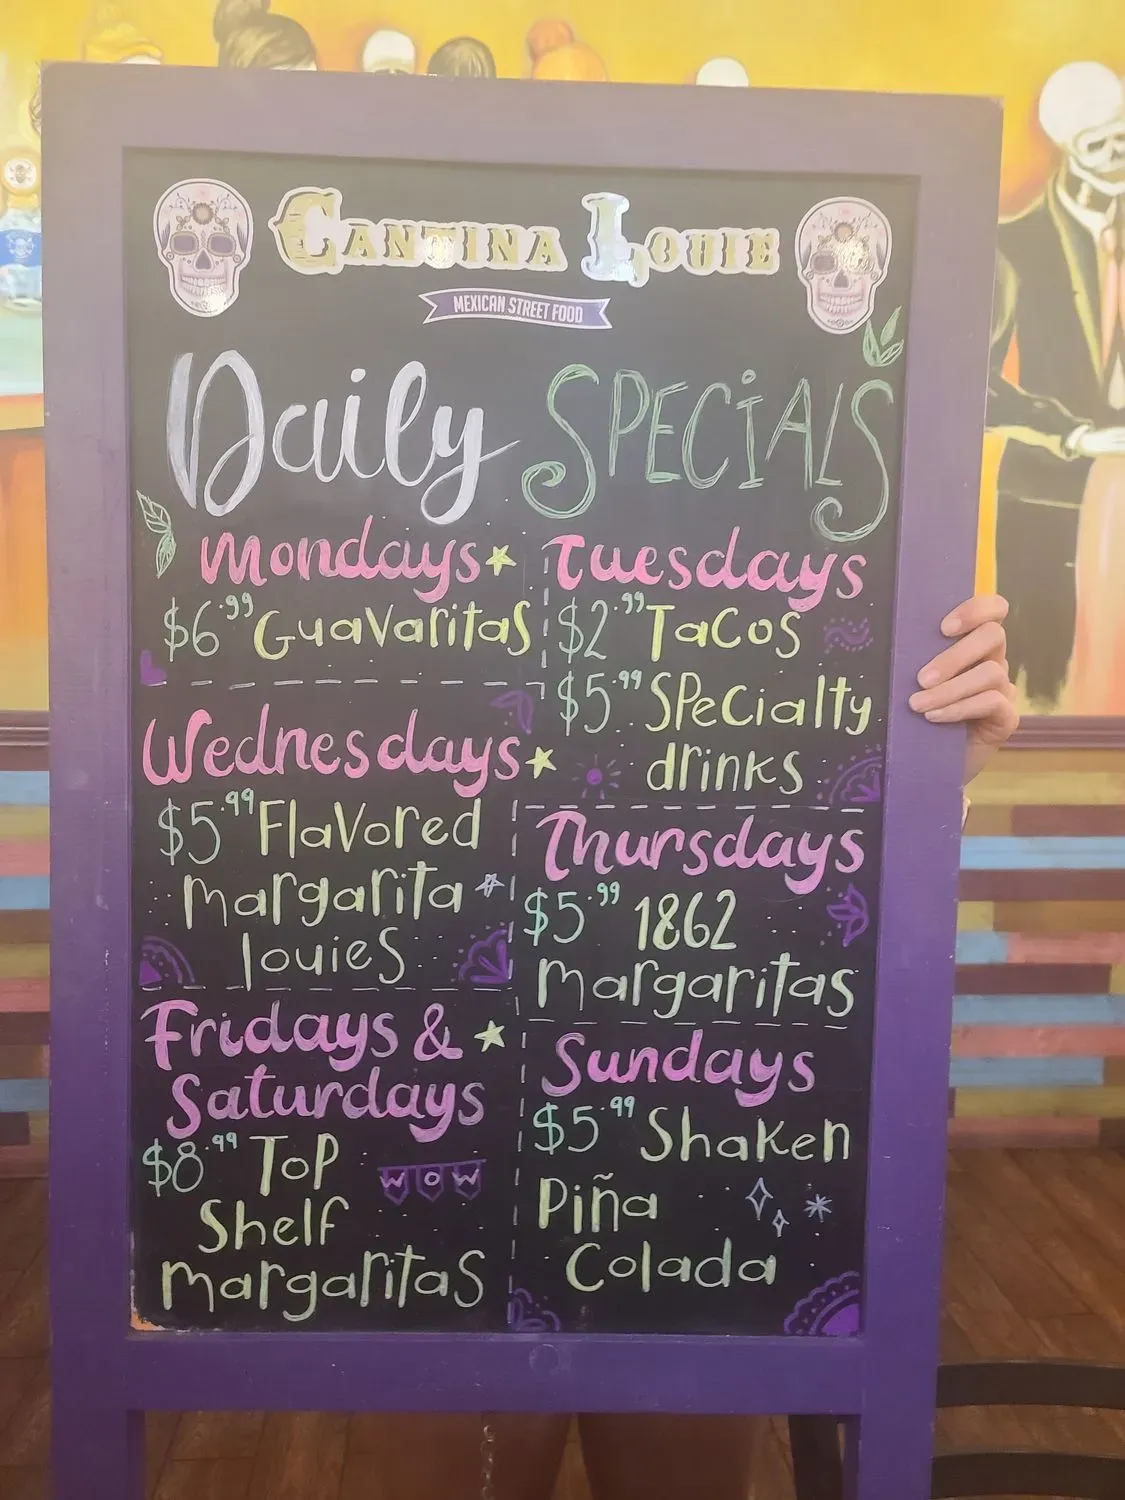 CANTINA LOUIE
MEXICAN STREET FOOD
Daily SPECIALS
Mondays
$6.99 Guavaritas
Tuesdays
$2.99 Tacos
$5.99 Specialty
drinks
Wednesdays
$5.99 Flavored
margarita
louies
Thursdays
$5.99 1862
margaritas
Fridays &
Saturdays
$8.99 Top
Shelf
margaritas
WOW
Sundays
$5.99 Shaken
Piña
Colada